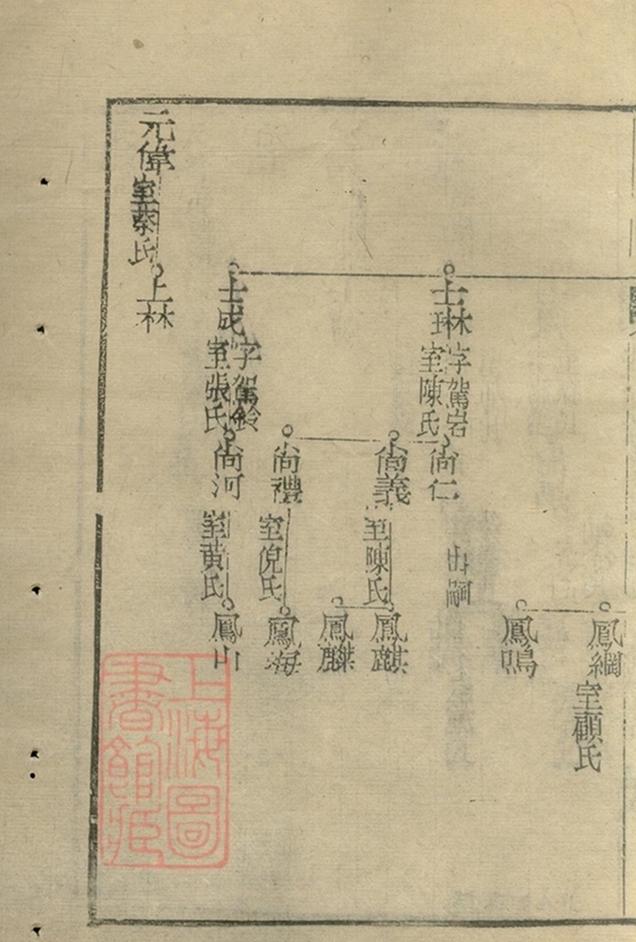 鳳綱
室顧氏
鳳鳴
士琳
字駕岩
室陳氏
尙仁
出嗣
尙義
室陳氏
鳳麒
鳳麟
尙禮
室倪氏
鳳海
士成
字駕鈴
室張氏
尙河
室黃氏
鳳山
元偉
室蔡氏
士林
上海圖
書館藏